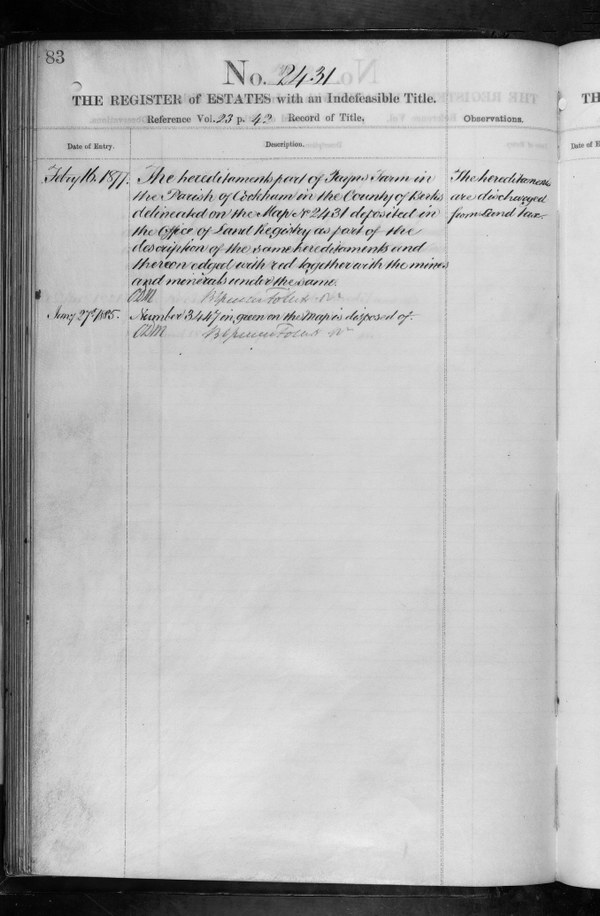 83
No. 2431
THE REGISTER of ESTATES with an Indefeasible Title.
Reference Vol. 23 p. 42 Record of Title,
Observations.
Date of Entry.
Description.
Febry 16. 1877.
The hereditaments part of Farm in
the Parish of Cookham in the County of Berks
delineated on the Map No 2431 deposited in
the Office of Land Registry as part of the
description of the same hereditaments and
thereon edged with red together with the mines
and minerals under the same.
The hereditaments
are discharged
from Land tax.
Jany 27th 1885.
Number 3447 in green on the Map is disposed of.
TH
Date of E